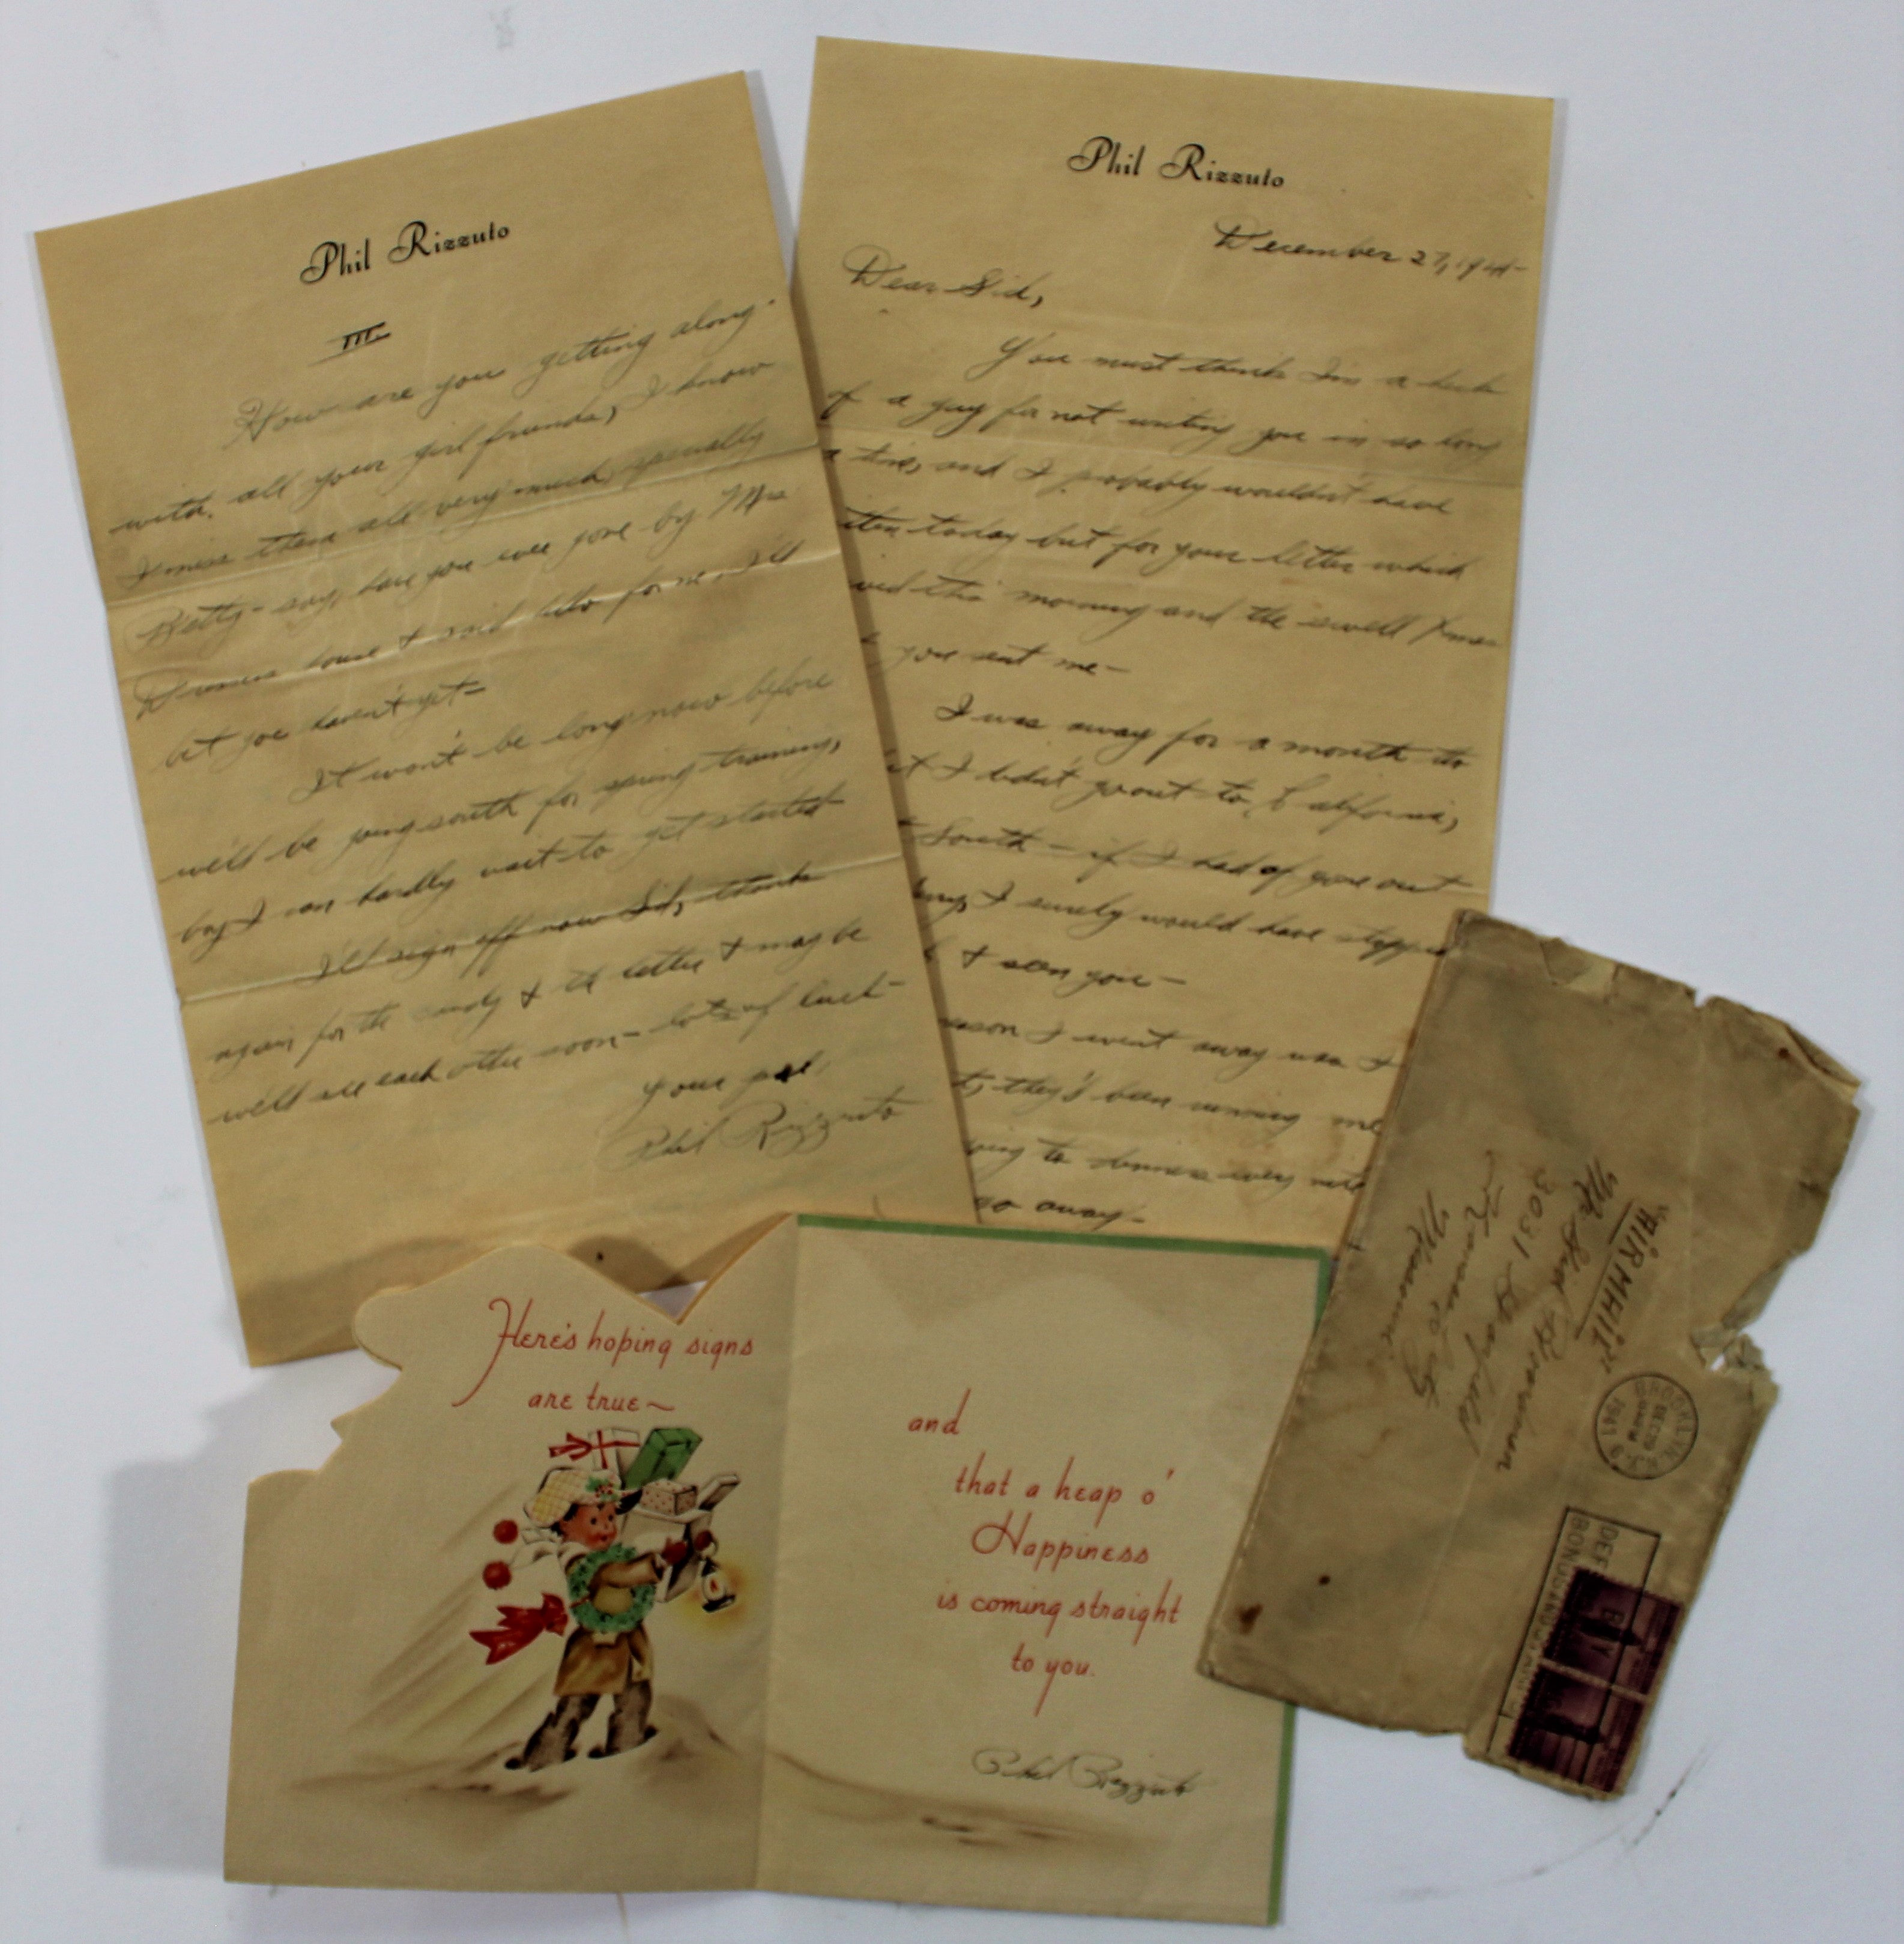 Phil Rizzuto
III.
How are you getting along
with all your girl friends, I know
I miss them all very much, specially
Betty - say, have you ever gone by Mrs
house & said hello for me, I'll
bet you haven't yet -
It won't be long now before
we'll be going south for spring training,
boy I can hardly wait to get started
I'll sign off now Sid, thanks
again for the candy & the letter & maybe
we'll see each other soon - lots of luck -
Your pal,
Phil Rizzuto
Phil Rizzuto
December 27, 1941
Dear Sid,
You must think I'm a heck
of a guy for not writing you in so long
a time, and I probably wouldn't have
today but for your letter which
this morning and the swell Xmas
you sent me -
I was away for a month to
I didn't go out to California,
South - if I had of gone out
I surely would have stopped
& seen you -
I went away was I
they'd been running me
to dinners every nite
go away -
Here's hoping signs
are true ~
and
that a heap o'
Happiness
is coming straight
to you.
Phil Rizzuto
"AIRMAIL"
Mr Sid Bordman
3031 Garfield
Kansas City
Missouri
BROOKLYN, N.Y.
DEC
1941
DEF
BONDS
BUY